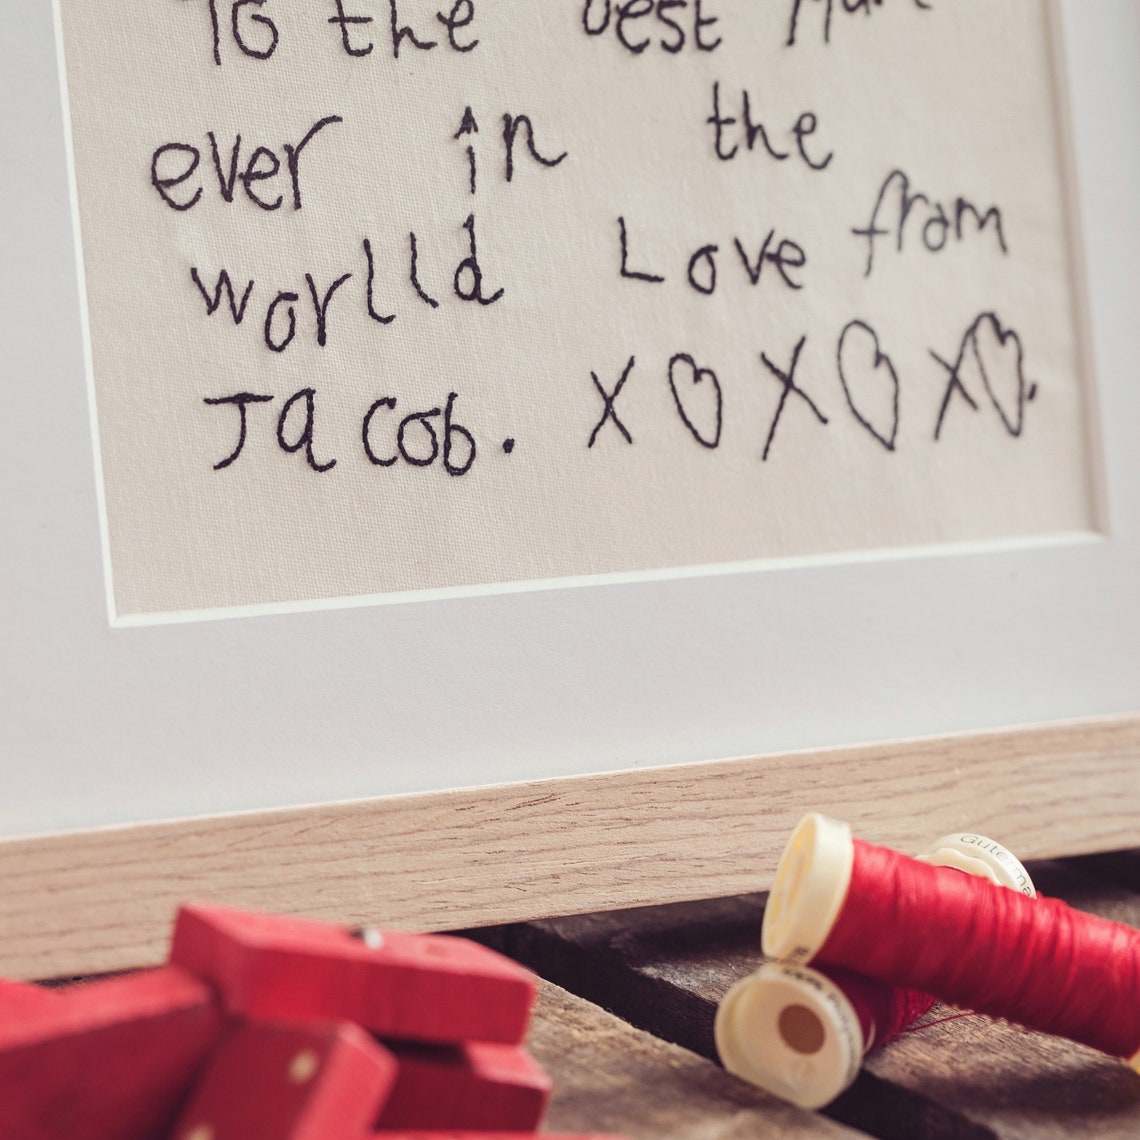 To the best
ever in the
worlld Love from
Jacob. X♡X♡X♡.